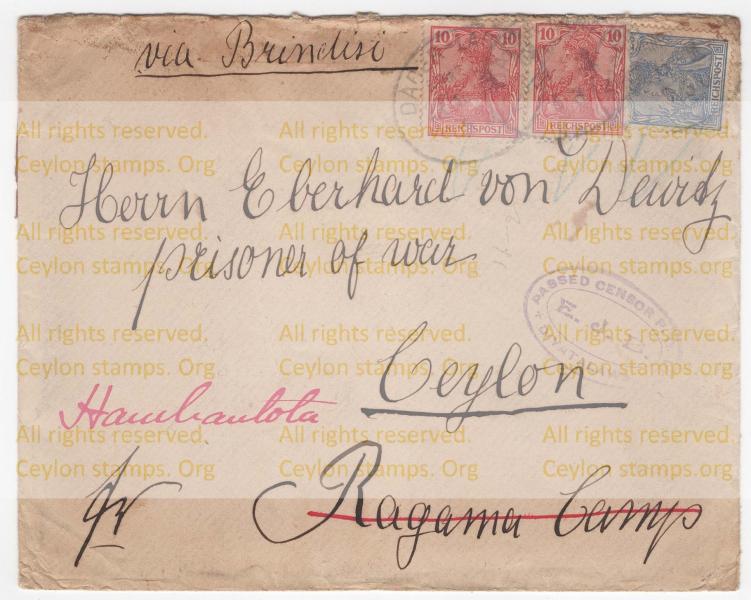 via Brindisi
10 10 10 10
REICHSPOST REICHSPOST REICHSPOST
All rights reserved. All rights reserved. All rights reserved.
Ceylon stamps. Org Ceylon stamps. Org Ceylon stamps.org
Herrn Eberhard von Dewitz
All rights reserved. All rights reserved. All rights reserved.
prisoner of war
Ceylon stamps. Org Ceylon stamps. Org Ceylon stamps.org
PASSED CENSOR
All rights reserved. All rights reserved. All rights reserved.
Ceylon stamps. Org Ceylon stamps. Org Ceylon stamps.org
Ceylon
Hambantota
All rights reserved. All rights reserved. All rights reserved.
Ceylon stamps. Org Ceylon stamps. Org Ceylon stamps.org
Ragama Camp